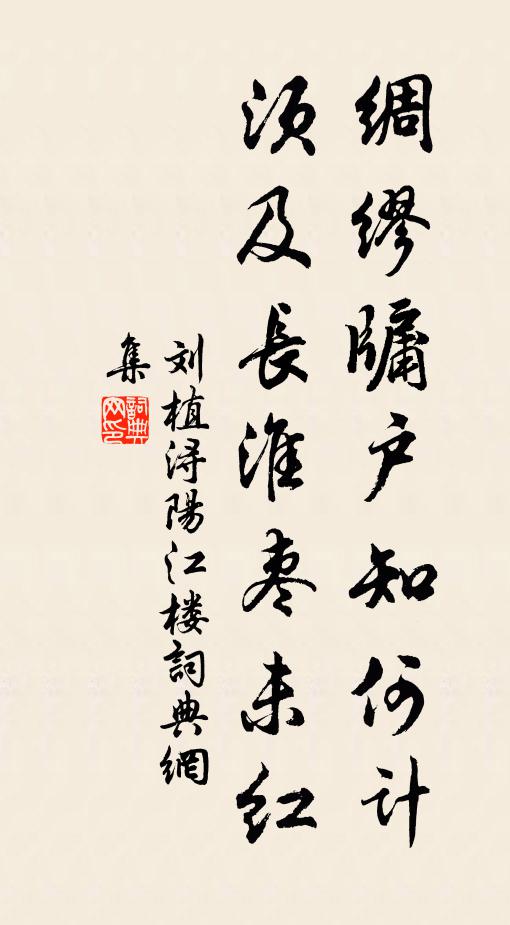 绸缪牖户知何计
须及長淮枣未红
刘植浔陽江楼詞典網
集
詞典网印